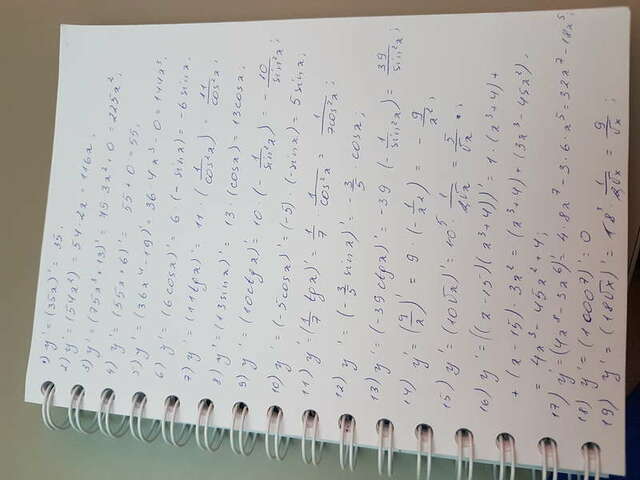 1) y' = (35x)' = 35.
2) y' = (54x²) = 54·2x = 116x.
3) y' = (75x³+13)' = 75·3x²+0 = 225x²;
4) y' = (55x+6)' = 55+0 = 55.
5) y' = (36x⁴-19)' = 36·4x³-0 = 144x³.
6) y' = (6cosx)' = 6·(-sinx) = -6sinx.
7) y' = (11tgx)' = 11·(1/cos²x) = 11/cos²x;
8) y' = (13sinx)' = 13·(cosx) = 13cosx;
9) y' = (10ctgx)' = 10·(-1/sin²x) = -10/sin²x;
10) y' = (-5cosx)' = (-5)·(-sinx) = 5sinx;
11) y' = (1/7 tgx)' = 1/7 · 1/cos²x = 1/7cos²x;
12) y' = (-3/5 sinx)' = -3/5 · cosx;
13) y' = (-39ctgx)' = -39 (-1/sin²x) = 39/sin²x;
14) y' = (9/x)' = 9·(-1/x²) = -9/x²;
15) y' = (10√x)' = 10⁵·1/2√x = 5/√x;
16) y' = ((x-15)(x³+4))' = 1·(x³+4)+
+(x-15)·3x² = (x³+4)+(3x³-45x²).
= 4x³-45x²+4;
17) y' = (4x⁸-3x⁶)' = 4·8x⁷-3·6·x⁵ = 32x⁷-18x⁵;
18) y' = (1000⁷)' = 0
19) y' = (18√x)' = 18·1/2√x = 9/√x;